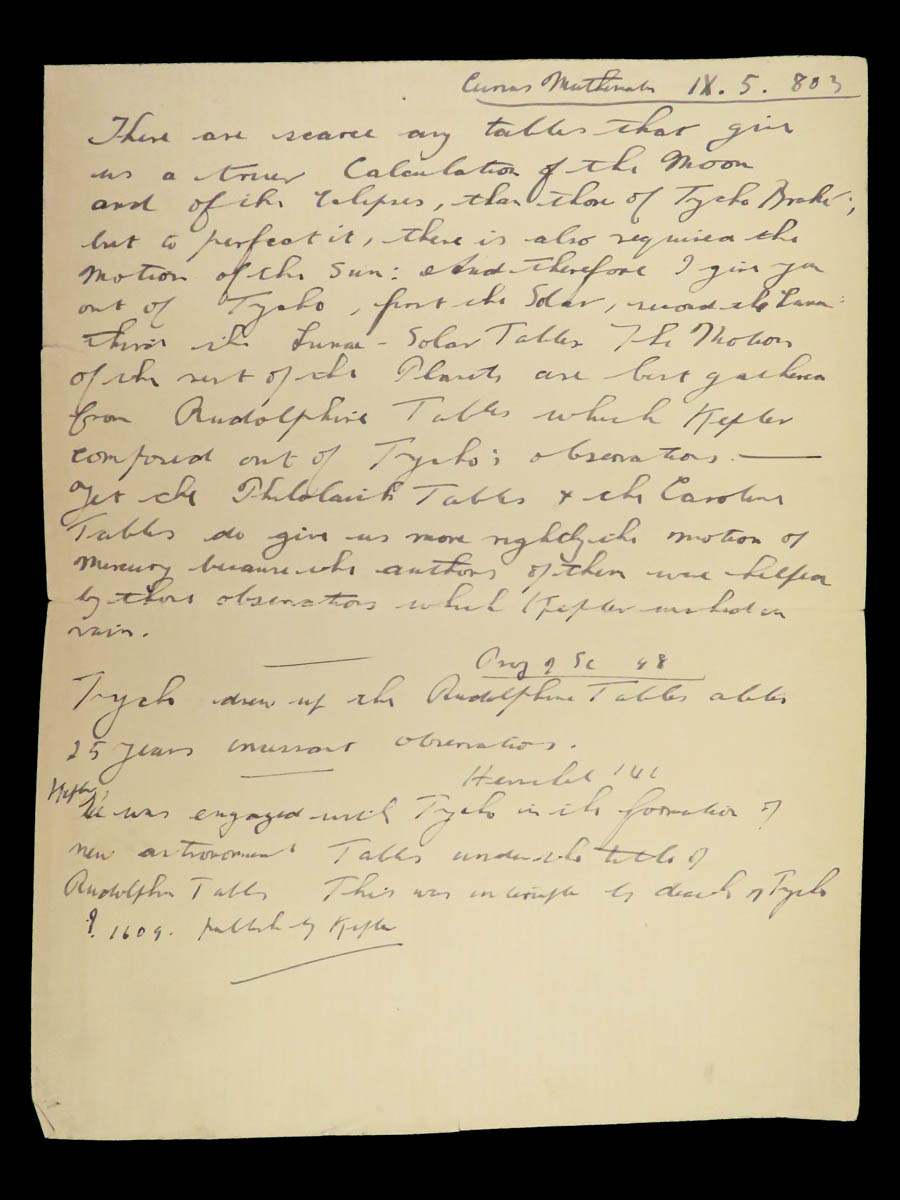 Cursus Mathemat IX. 5. 803
There are scarce any tables that give
us a truer Calculation of the Moon
and of the Eclipses, than those of Tycho Brahe;
but to perfect it, there is also required the
motion of the Sun: And therefore I give you
out of Tycho, first the Solar, second the Lunar:
third the Lunae-Solar Tables The Motions
of the rest of the Planets are best gathered
from Rudolphine Tables which Kepler
composed out of Tycho's observations. —
Yet the Philolaick Tables & the Caroline
Tables do give us more rightly the motion of
Mercury because the authors of them were helped
by those observations which Kepler wished in
vain.
Prog of Sc 48
Tycho drew up the Rudolphine Tables after
25 years incessant observations.
Herschel 141
Kepler
He was engaged with Tycho in the formation of
new astronomical Tables under the title of
Rudolphin Tables This was interrupted by death of Tycho
?. 1609. Publish by Kepler